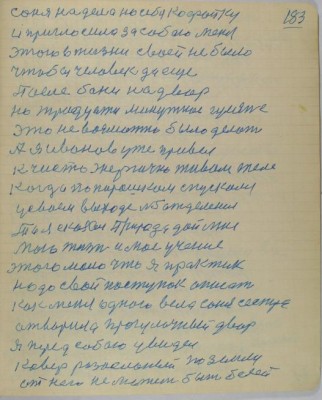 183
Соня надела на себя кофточку
и пригласила за собою меня
этого в жизни своей не было
чтобы человек да еще
После бани на двор
но тридцати минутное гуляние
это невозможно было делать
А я Иванов уже привык
к чисто энергично живом теле
Когда по порошком спускали
у своем выходе отделения
Там сказал Природа дай мне
мою жизнь и мое учение
этого мало что я практик
надо свой поступок описать
Как меня одного вела Соня сестра
отворила прогулочный двор
Я перед собою увидел
Ковер разосланный по земле
от него не может быть белей